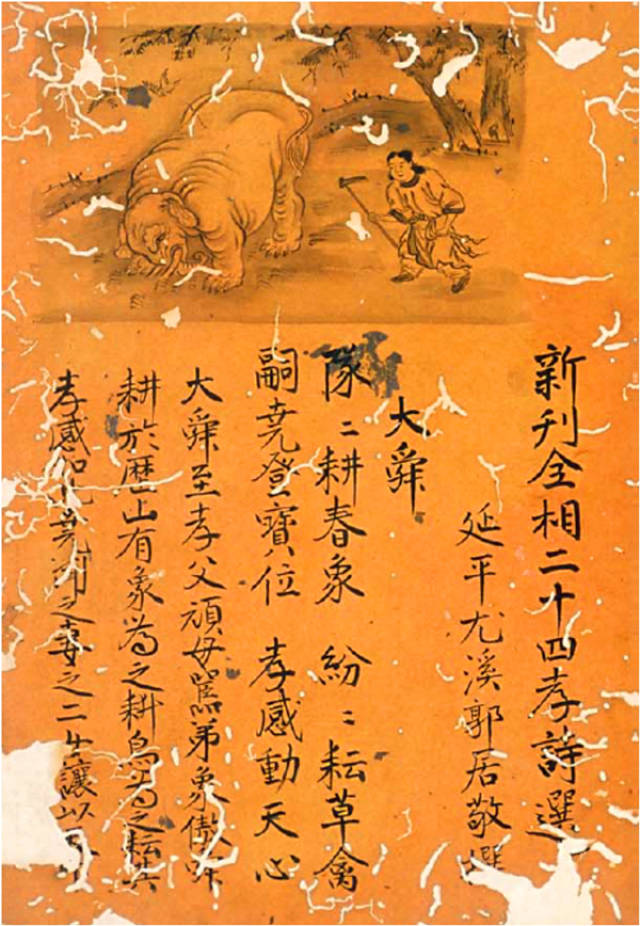 新刊全相二十四孝詩選
延平尤溪郭居敬撰
大舜
隊〻耕春象 紛〻耘草禽
嗣尭登寶位 孝感動天心
大舜至孝父頑母嚚弟象傲
耕於歷山有象為之耕鳥為之耘其
孝感如此尭之妻之二女讓以